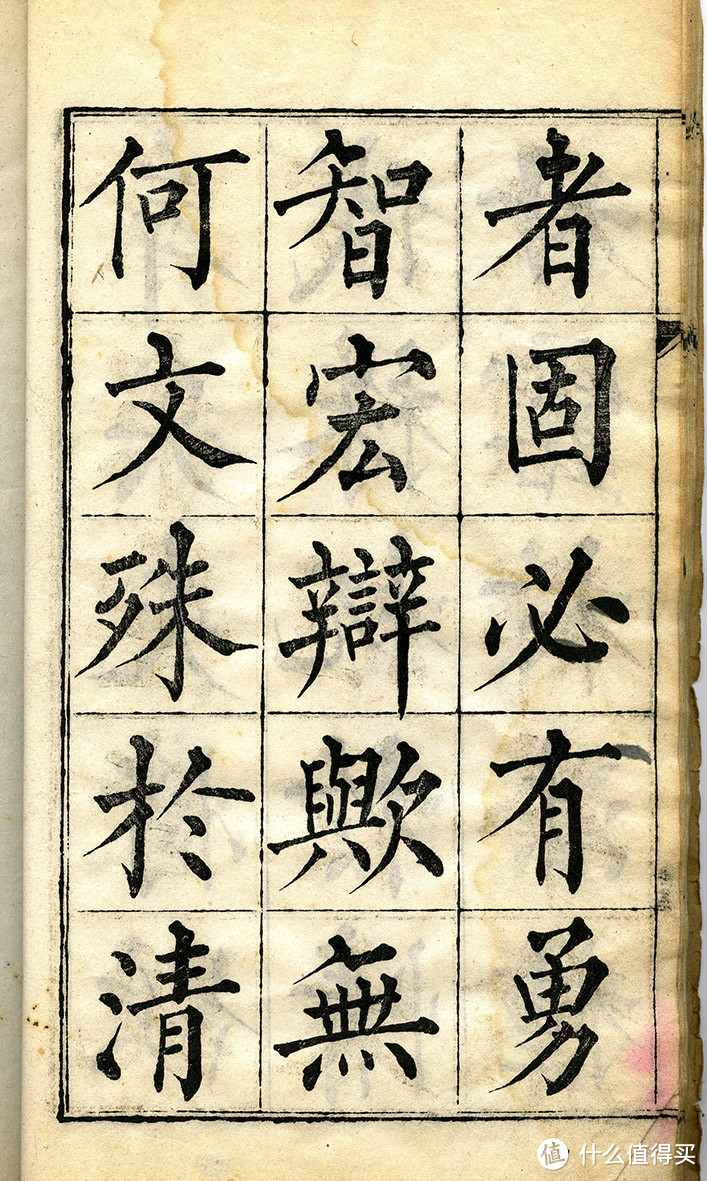 者固必有勇
智宏辯歟無
何文殊於清
值 什么值得买